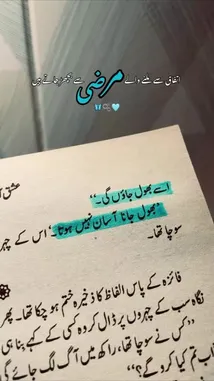 اتفاق سے ملنے والے مرضی سے بچھڑ جاتے ہیں
عشق آ
اسے بھول جاؤں گی۔“
”بھول جانا آسان نہیں ہوتا۔“ اس کے چہر
سوچا تھا۔
فائزہ کے پاس الفاظ کا ذخیرہ ختم ہو چکا تھا۔ پھر
نگاہ سب کے چہروں پر ڈال کر وہ کسی کے کہے بنا ہی
”کس نے سوچا تھا، راکھ میں آگ لگ جائے گی
تم کیا کرو گے؟“